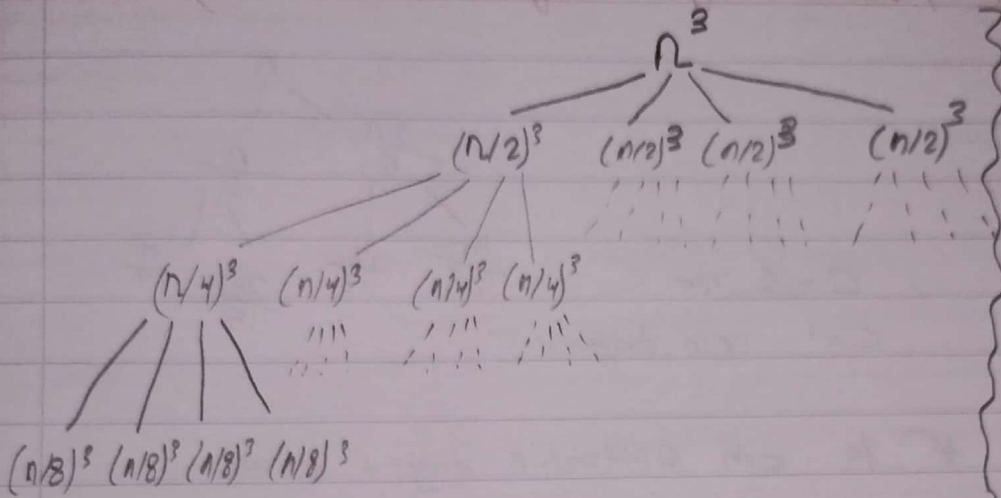 n³
(n/2)³ (n/2)³ (n/2)³ (n/2)³
(n/4)³ (n/4)³ (n/4)³ (n/4)³
(n/8)³ (n/8)³ (n/8)³ (n/8)³